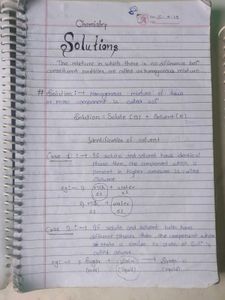 Chemistry
Solutions
The mixture in which there is no difference betn
constituent particles are called as homogenous mixture
# Solution :- Homogenous mixture of two
or more component is called soln
Solution = Solute (s) + Solvent (s)
Identification of solvent
Case 1 :- If solute and solvent have identical
phase then the component which is
present in higher amount is called
solvent.
eg:- 1) milk + water
2) milk + water
Case 2 :- If solute and solvent both have
different phases then the component which
state is similar to state of soln is
called solvent
eg:- 1) Sugar + water → Syrup
(solid) (liquid) (liquid)